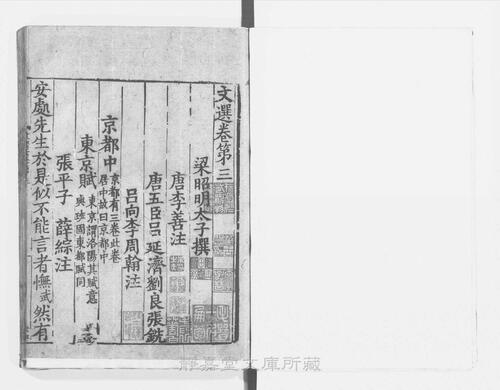 文選卷第三
梁昭明太子撰
唐李善注
唐五臣呂延濟劉良張銑
呂向李周翰注
京都中
京都有三卷此卷
居中故曰京都中
東京賦
東京謂洛陽其賦意
與班固東都賦同
張平子
薛綜注
安處先生於是似不能言者憮
武
然有
靜嘉堂文庫所藏